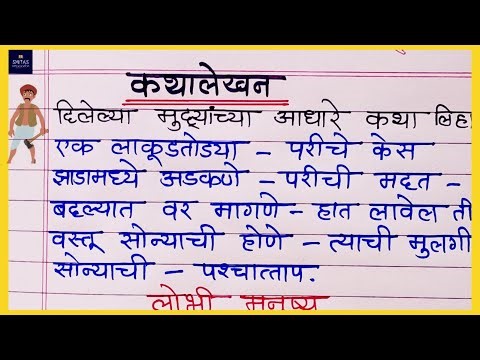 SMITA'S
कथालेखन
दिलेल्या मुद्द्यांच्या आधारे कथा लिहा
एक लाकूडतोड्या – परीचे केस
झाडामध्ये अडकणे – परीची मदत –
बदल्यात वर मागणे – हात लावेल ती
वस्तू सोन्याची होणे – त्याची मुलगी
सोन्याची – पश्चात्ताप.
लोभी मनुष्य